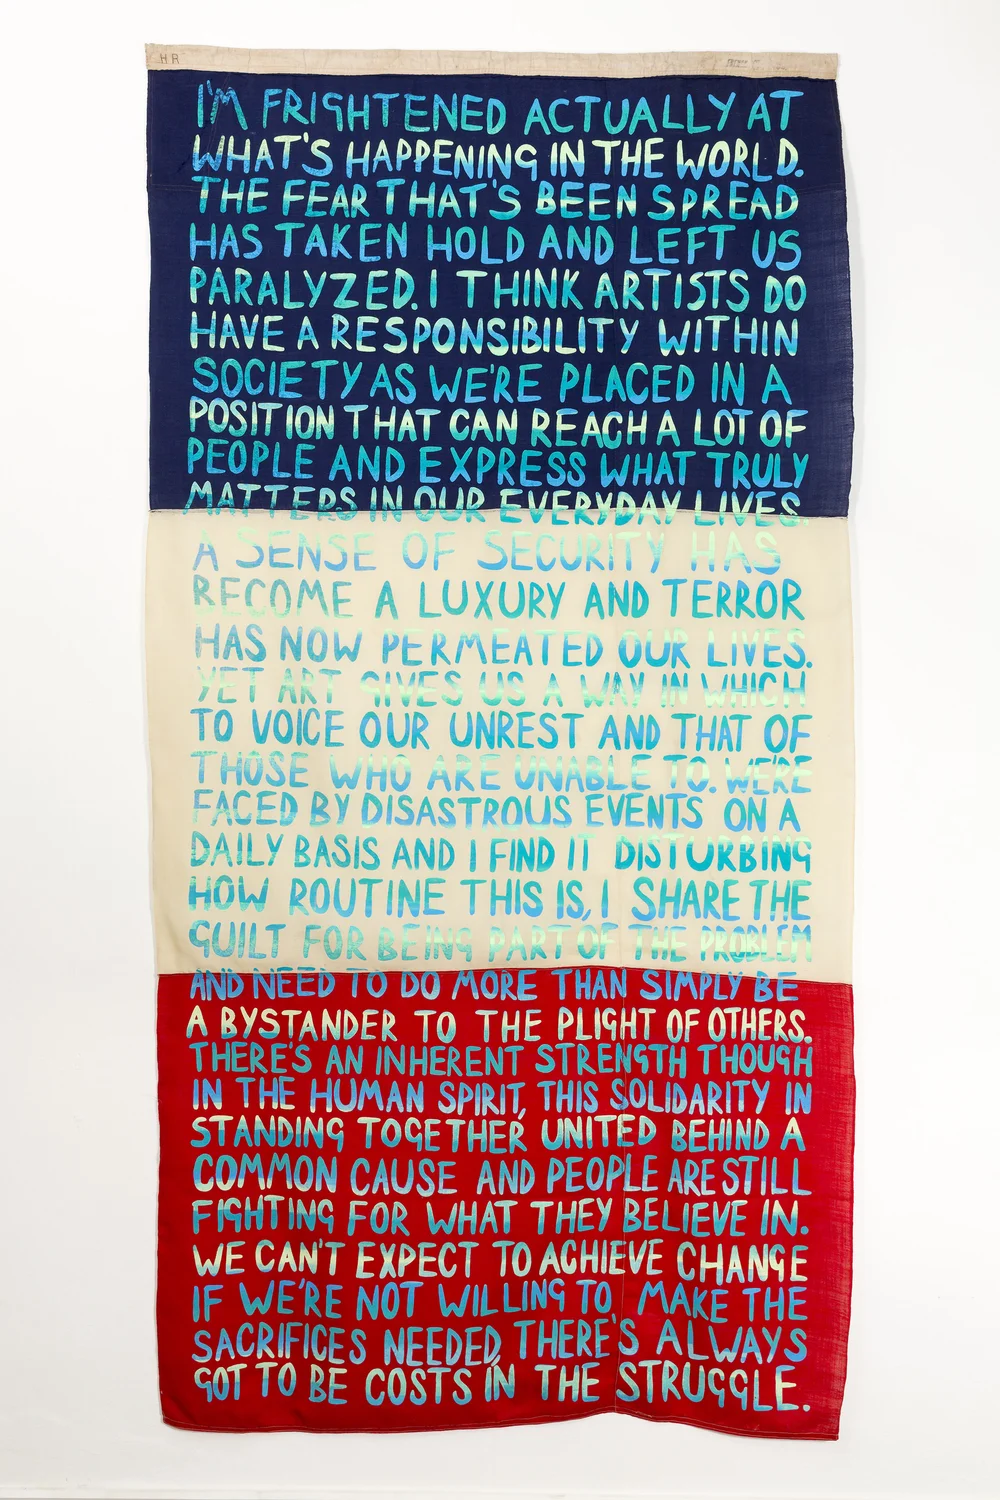 HR
I'M FRIGHTENED ACTUALLY AT
WHAT'S HAPPENING IN THE WORLD.
THE FEAR THAT'S BEEN SPREAD
HAS TAKEN HOLD AND LEFT US
PARALYZED. I THINK ARTISTS DO
HAVE A RESPONSIBILITY WITHIN
SOCIETY AS WE'RE PLACED IN A
POSITION THAT CAN REACH A LOT OF
PEOPLE AND EXPRESS WHAT TRULY
MATTERS IN OUR EVERYDAY LIVES.
A SENSE OF SECURITY HAS
BECOME A LUXURY AND TERROR
HAS NOW PERMEATED OUR LIVES.
YET ART GIVES US A WAY IN WHICH
TO VOICE OUR UNREST AND THAT OF
THOSE WHO ARE UNABLE TO. WE'RE
FACED BY DISASTROUS EVENTS ON A
DAILY BASIS AND I FIND IT DISTURBING
HOW ROUTINE THIS IS, I SHARE THE
GUILT FOR BEING PART OF THE PROBLEM
AND NEED TO DO MORE THAN SIMPLY BE
A BYSTANDER TO THE PLIGHT OF OTHERS.
THERE'S AN INHERENT STRENGTH THOUGH
IN THE HUMAN SPIRIT, THIS SOLIDARITY IN
STANDING TOGETHER UNITED BEHIND A
COMMON CAUSE AND PEOPLE ARE STILL
FIGHTING FOR WHAT THEY BELIEVE IN.
WE CAN'T EXPECT TO ACHIEVE CHANGE
IF WE'RE NOT WILLING TO MAKE THE
SACRIFICES NEEDED, THERE'S ALWAYS
GOT TO BE COSTS IN THE STRUGGLE.